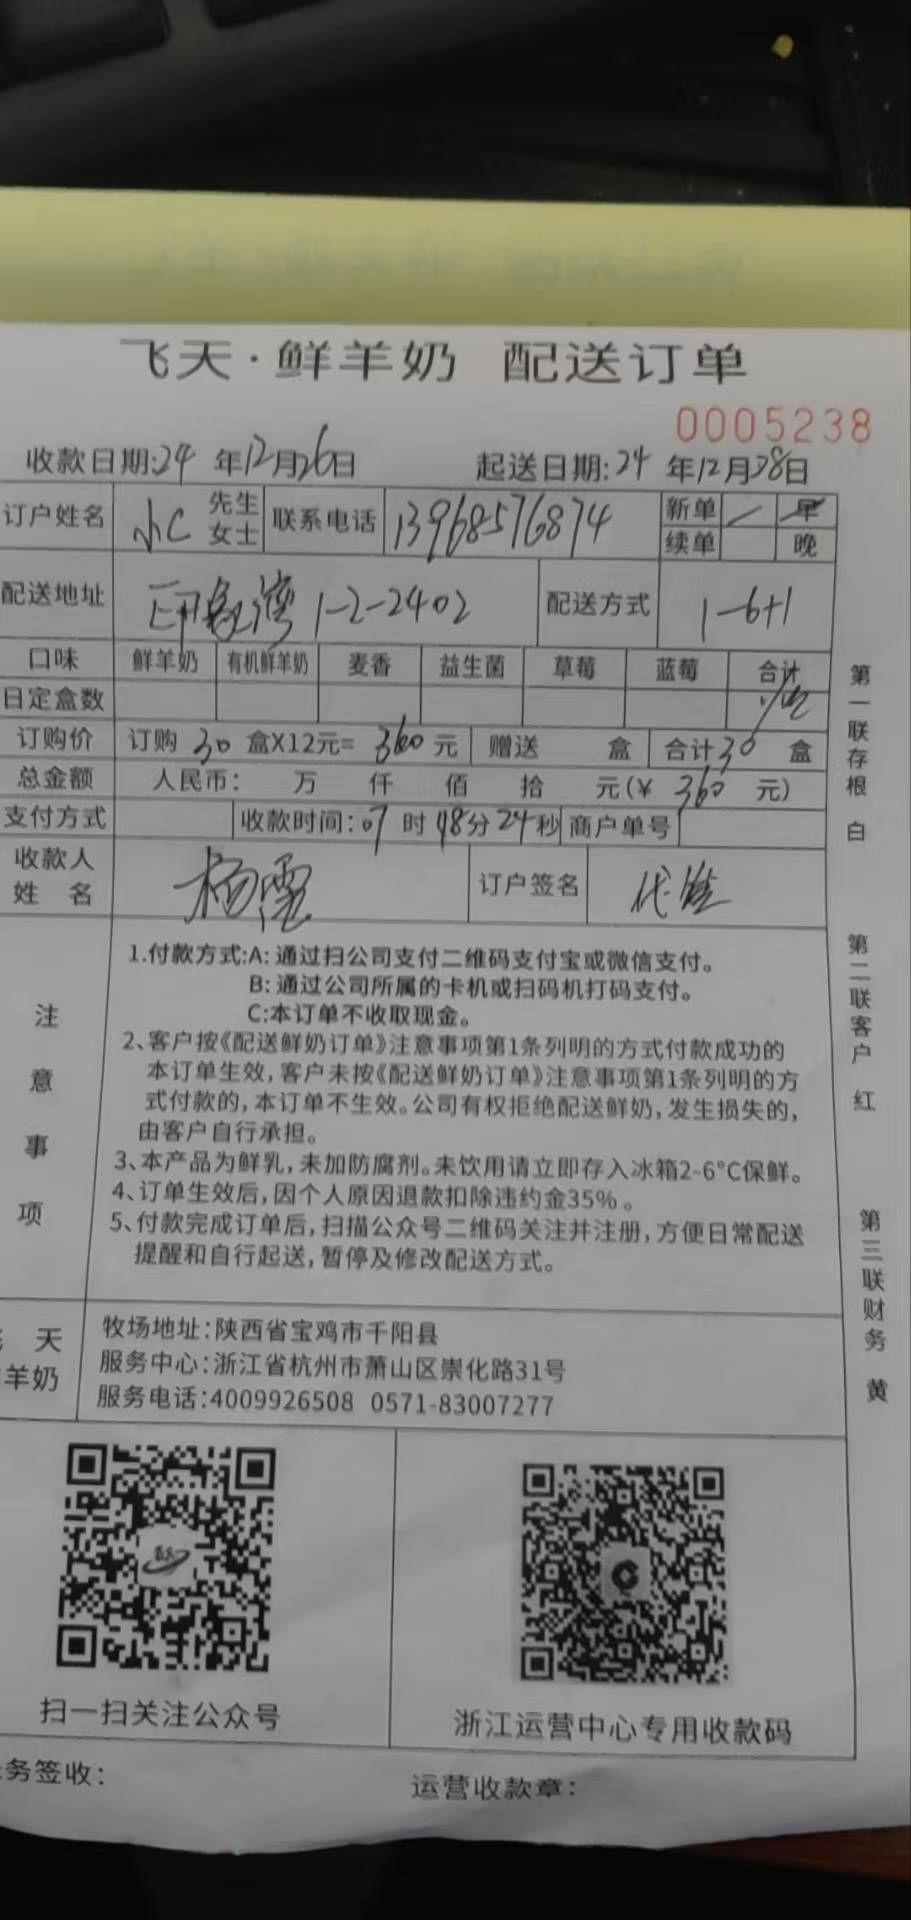 飞天·鲜羊奶 配送订单
0005238
收款日期:24年12月26日 起送日期:24年12月28日
订户姓名 小C 先生 女士 联系电话 13968576874 新单 / 早
续单 晚
配送地址 印象湾 1-2-2402 配送方式 1-6+1
口味 鲜羊奶 有机鲜羊奶 麦香 益生菌 草莓 蓝莓 合计
日定盒数
订购价 订购 30 盒X12元= 360 元 赠送 盒 合计30 盒
总金额 人民币: 万 仟 佰 拾 元(¥ 360 元)
支付方式 收款时间:07时48分24秒 商户单号
收款人姓名 杨雪 订户签名
注意事项
1.付款方式:A:通过扫公司支付二维码支付宝或微信支付。
B:通过公司所属的卡机或扫码机打码支付。
C:本订单不收取现金。
2、客户按《配送鲜奶订单》注意事项第1条列明的方式付款成功的
本订单生效,客户未按《配送鲜奶订单》注意事项第1条列明的方
式付款的,本订单不生效。公司有权拒绝配送鲜奶,发生损失的,
由客户自行承担。
3、本产品为鲜乳,未加防腐剂。未饮用请立即存入冰箱2-6°C保鲜。
4、订单生效后,因个人原因退款扣除违约金35%。
5、付款完成订单后,扫描公众号二维码关注并注册,方便日常配送
提醒和自行起送,暂停及修改配送方式。
天
羊奶
牧场地址:陕西省宝鸡市千阳县
服务中心:浙江省杭州市萧山区崇化路31号
服务电话:4009926508 0571-83007277
扫一扫关注公众号
浙江运营中心专用收款码
务签收: 运营收款章:
第一联存根 白
第二联客户 红
第三联财务 黄